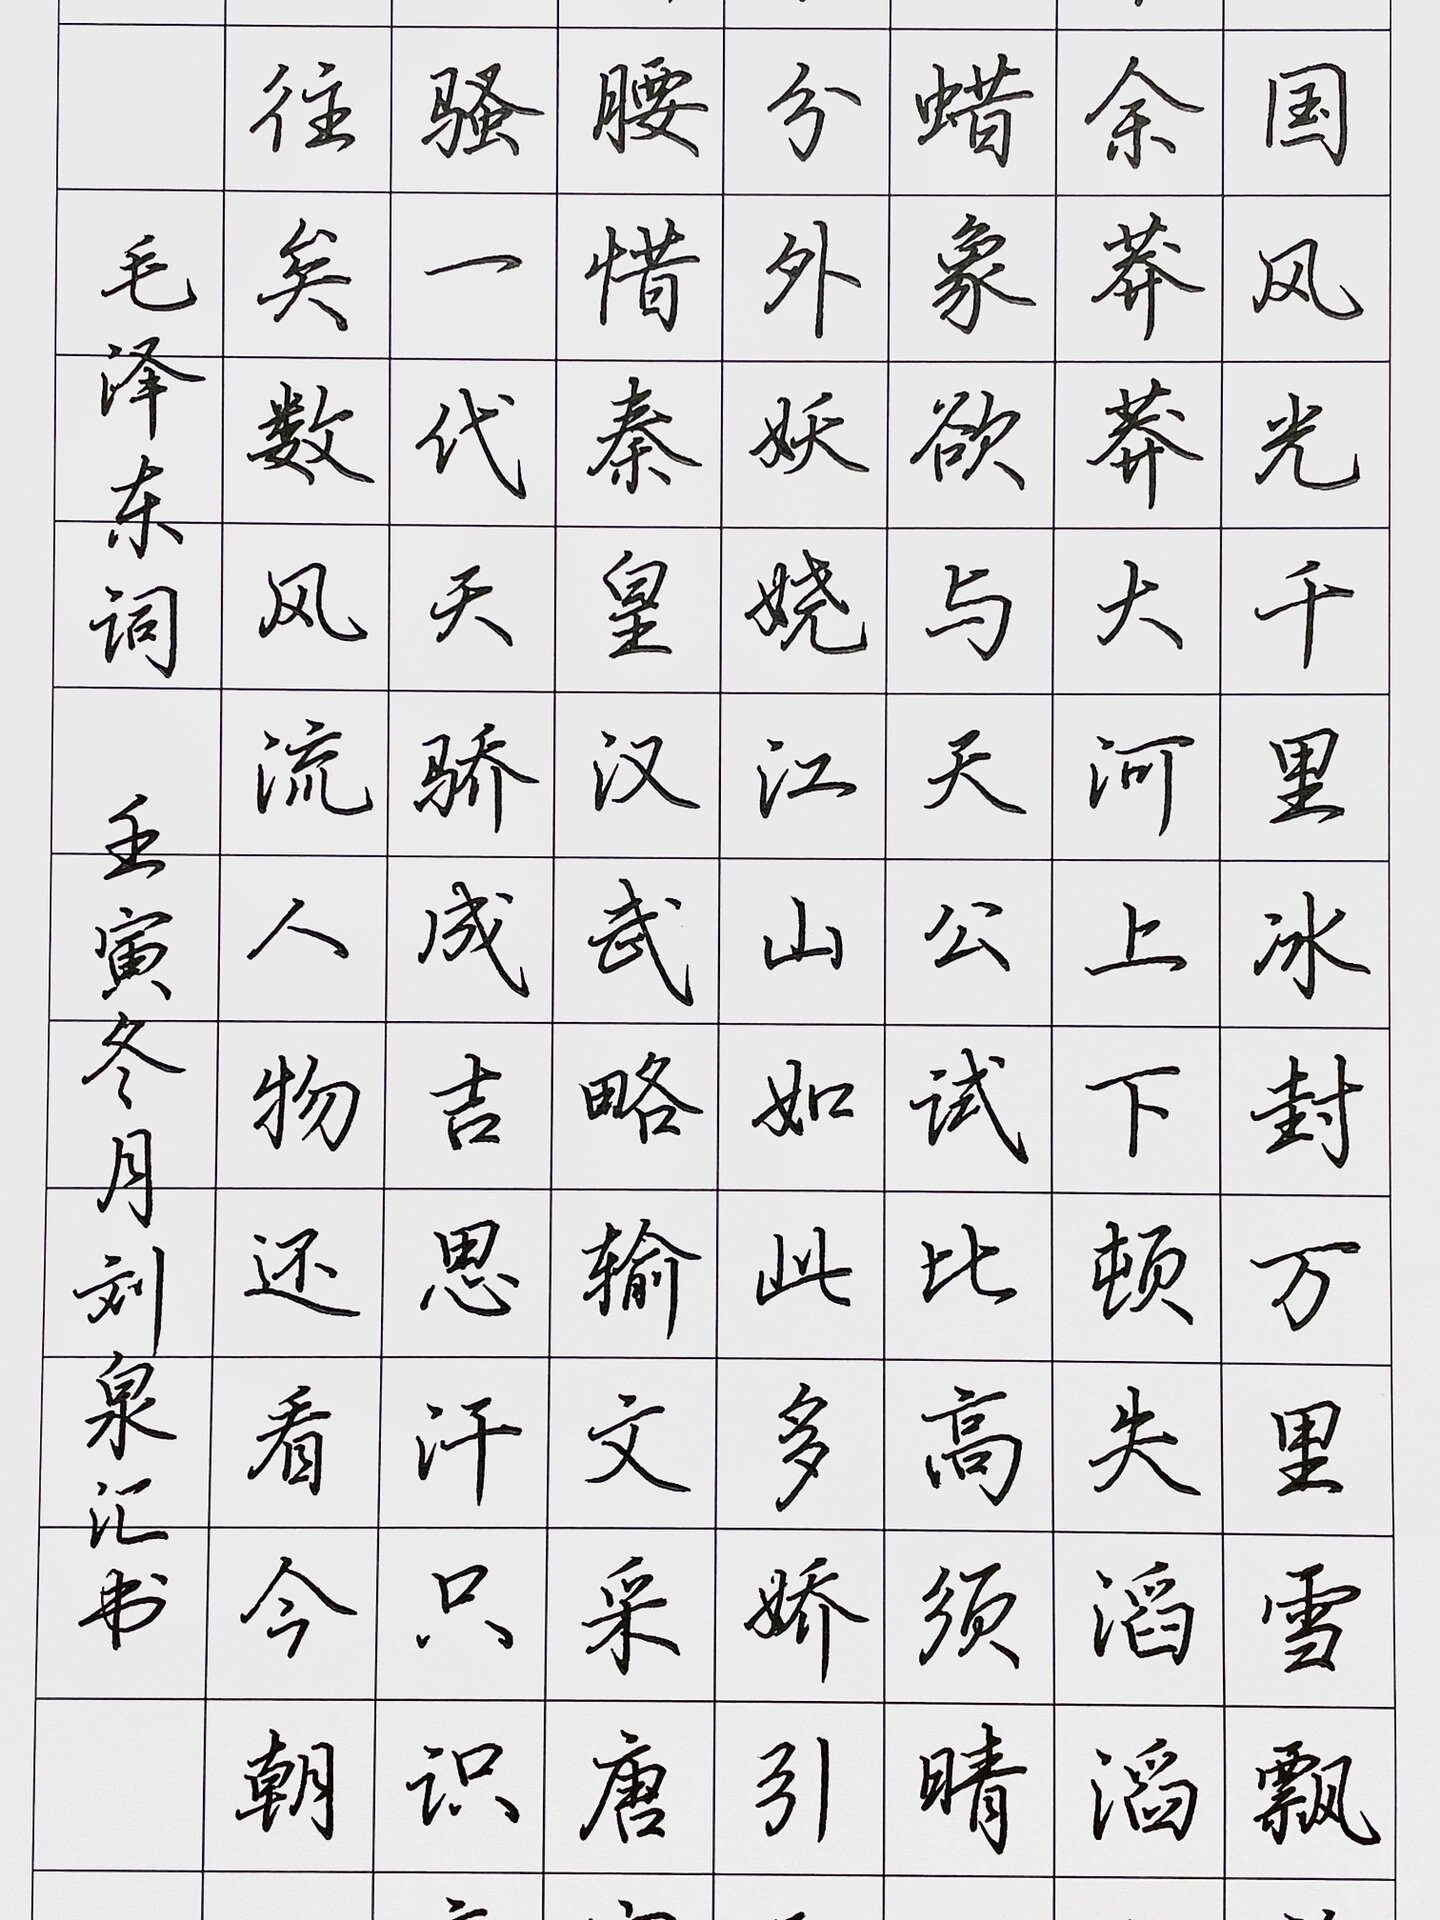 国风光千里冰封万里雪飘
余莽莽大河上下顿失滔滔
蜡象欲与天公试比高须晴
分外妖娆江山如此多娇引
腰惜秦皇汉武略输文采唐
骚一代天骄成吉思汗只识
往矣数风流人物还看今朝
毛泽东词 壬寅冬月刘泉汇书